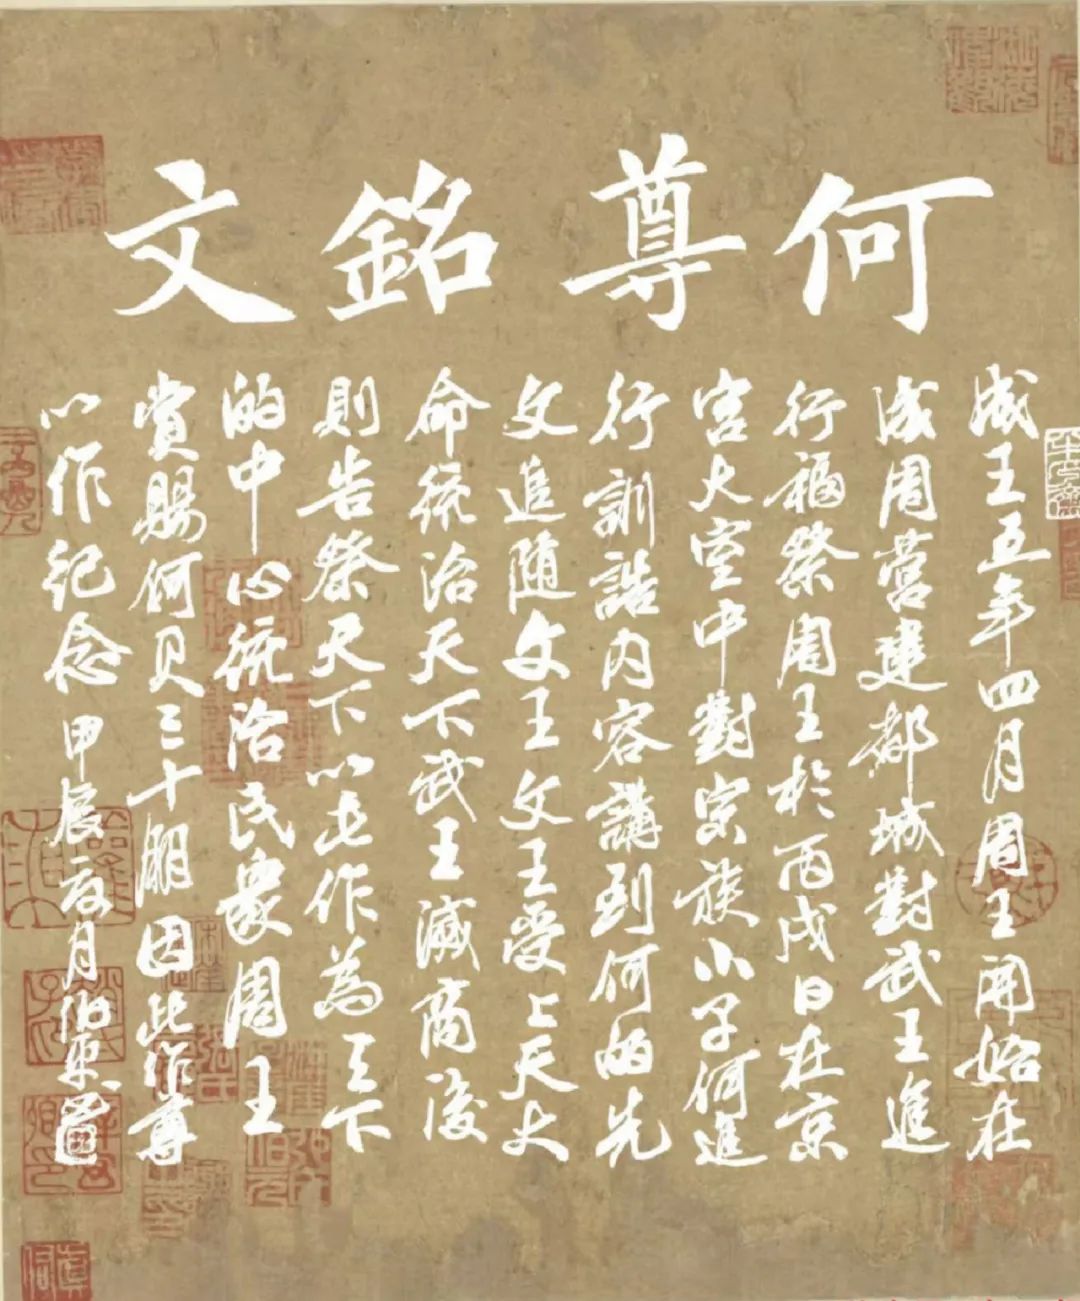 何尊銘文
成王五年四月周王開始在
成周營建都城對武王進
行福祭周王於丙戌日在京
宮大室中對宗族小子何進
行訓誥内容講到何的先
父追隨文王文王受上天大
命統治天下武王滅商後
則告祭天下以此作為天下
的中心統治民眾周王
賞賜何貝三十朋因此作尊
以作紀念甲辰夏月